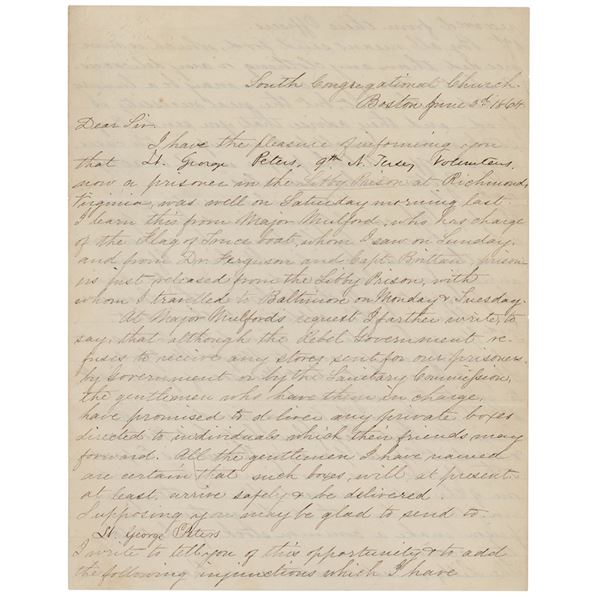 South Congregational Church.
Boston June 3d 1864
Dear Sir,
I have the pleasure of informing you
that Lt. George Peters, 9th N. Jersey Volunteers,
now a prisoner in the Libby Prison at Richmond,
Virginia, was well on Saturday morning last.
I learn this from Major Mulford, who has charge
of the Flag of Truce boat, whom I saw on Sunday,
and from Dr. Ferguson and Capt. Brittan, prison-
ers just released from the Libby Prison, with
whom I travelled to Baltimore on Monday & Tuesday.
At Major Mulfords request I farther write, to
say, that although the Rebel Government re-
fuses to receive any stores sent for our prisoners
by Government or by the Sanitary Commission,
the gentlemen who have them in charge,
have promised to deliver any private boxes
directed to individuals which their friends may
forward. All the gentlemen I have named
are certain that such boxes, will, at present
at least, arrive safely & be delivered.
Supposing you may be glad to send to
Lt George Peters
I write to tell you of this opportunity & to add
the following injunctions which I have